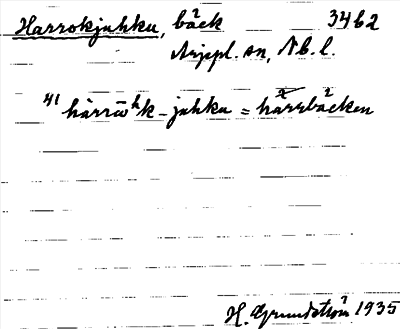 Harrokjuhku, bäck 3462
Arjepl. sn, Nb. l.
41 hàrrōʰk-juhku = harrbäcken
H. Grundström 1935